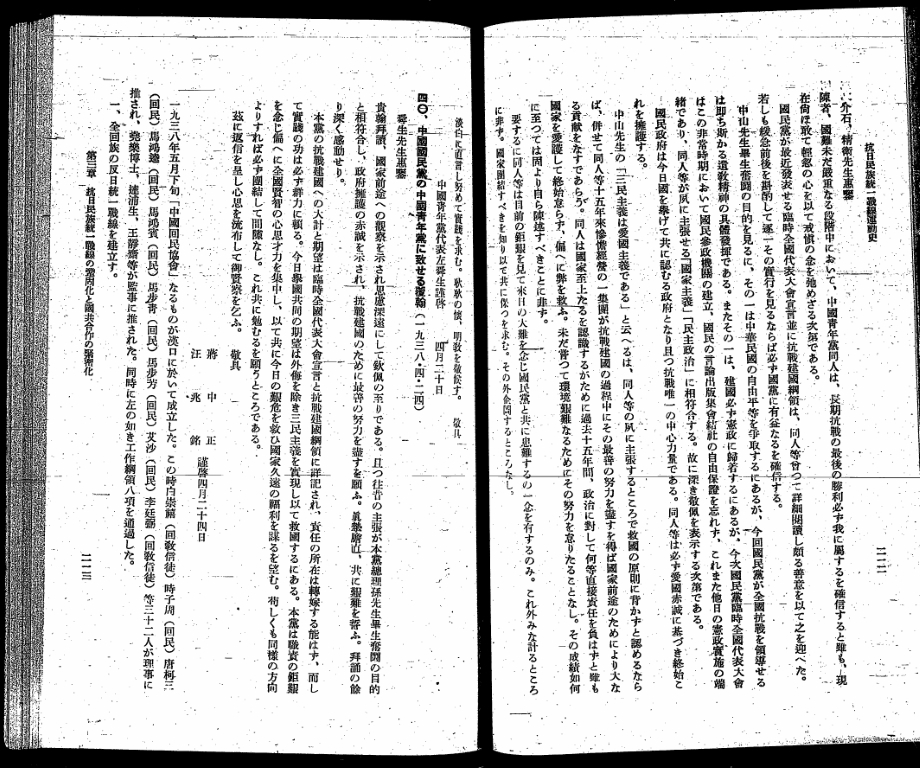 抗日民族統一戰線運動史
二一二
介石、精衞先生惠鑒
陳者、國難未だ嚴重なる段階中において、中國靑年黨同人は、長期抗戰の最後の勝利必ず我に屬するを確信すると雖も、現
在尙ほ敢て輕忽の心を以て戒愼の念を弛めざる次第である。
國民黨が最近發表せる臨時全國代表大會宣言並に抗戰建國綱領は、同人等曾つて詳細閱讀し頗る善意を以て之を迎へた。
若しも緩急前後を斟酌して逐一その實行を見るならば必ず國に有益なるを確信する。
中山先生畢生奮鬪の目的を見るに、その一は中華民國の自由平等を爭取するにあるが、今回國民黨が全國抗戰を領導せる
は卽ち斯かる遺敎精神の具體發揮である。またその一は、建國必ず憲政に歸着するにあるが、今次國民黨臨時全國代表大會
はこの非常時期において國民參政機關の建立、國民の言論出版集會結社の自由保證を忘れず、これまた他日の憲政實施の端
緖であり、同人等が夙に主張せる「國家主義」「民主政治」に相符合する。故に深き敬佩を表示する次第である。
國民政府は今日國を擧げて共に認むる政府となり且つ抗戰唯一の中心力量である。同人等は必ず愛國赤誠に基づき終始こ
れを擁護する。
中山先生の「三民主義は愛國主義である」と云へるは、同人等の夙に主張するところで救國の原則に背かずと認めるなら
ば、併せて同人等十五年來慘憺經營の一集團が抗戰建國の過程中にその最善の努力を盡すを得ば國家前途のためにより大な
る貢獻をなすであらう。同人は國家至上たるを認識するがために過去十五年間、政治に對して何等直接責任を負はずと雖も
國家を愛護して終始怠らず、偏へに弊を救ふ。未だ曾つて環境艱難なるためにその努力を怠りたることなし。その成績如何
に至つては固より自ら陳述すべきことに非ず。
要するに同人等は目前の鉅艱を見て來日の大難を念じ國民黨と共に患難するの一念を有するのみ。これ外みな計るところ
に非ず。國家團結すべきを知り以て共に保つを求む。その外企圖するところなし。
淡白に直言し努めて實踐を求む。耿耿の懷、明敎を敬候す。 敬具
中國靑年黨代表左舜生謹啓 四月二十日
四〇、中國國民黨の中國靑年黨に致せる復翰(一九三八・四・二四)
舜生先生惠鑒
貴翰拜讀、國家前途への觀察を示され思慮深遠にして欽佩の至りである。且つ往昔の主張が本黨總理孫先生畢生奮鬪の目的
と相符合し、政府擁護の赤誠を示され、抗戰建國のために最善の努力を盡すを願ふ。眞摯磨直、共に艱難を誓ふ。拜誦の餘
り深く感動せり。
本黨の抗戰建國への大計と期望は臨時全國代表大會宣言と抗戰建國綱領に詳記され、責任の所在は轉嫁する能はず、而し
て實踐の功は必ず群力に賴る。今日擧國共同の期望は外侮を除き三民主義を實現し以て救國するにある。本黨は職責の鉅艱
を念じ偏へに全國賢智の心思才力を集中し、以て共に今日の艱危を救ひ國家久遠の福利を謀るを望む。苟しくも同樣の方向
よりすれば必ず團結して間隙なし。これ共に勉むるを願ふところである。
茲に復信を呈し心思を流布して御賢察を乞ふ。
敬具
蔣中正
汪兆銘 謹啓四月二十四日
一九三八年五月下旬「中國回民協會」なるものが漢口に於いて成立した。この時白崇禧(回敎信徒)時子周(回民)唐柯三
(回民)馬鴻逵(回民)馬鴻賓(回民)馬步靑(回民)馬步芳(回民)艾沙(回民)李廷弼(回敎信徒)等三十二人が理事に
推され、堯樂博士、達浦生、王靜齋等が監事に推された。同時に左の如き工作綱領八項を通過した。
一、全回族の反日統一戰線を建立す。
第三章 抗日民族統一戰線の鞏固化と國共合作の緊密化
二一三